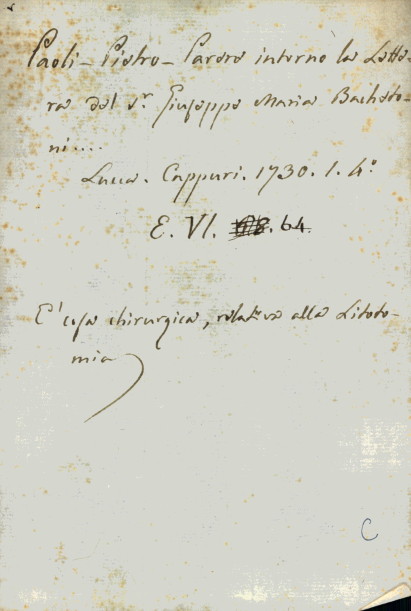 Paoli - Pietro - Parere intorno la Lette-
ra del sr. Giuseppe Maria Bacheto-
ni....
Lucca. Cappuri. 1730. 1. 4°.
E. VI. 64.
E' cosa chirurgica, relatva alla Litoto-
mia
C